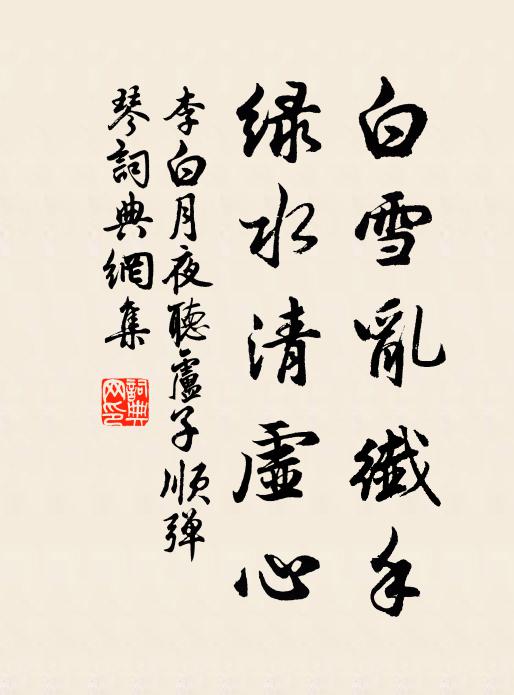 白雪亂纖手
緑水清虛心
李白月夜聽盧子順弹
琴詞典網集
詞典
网印